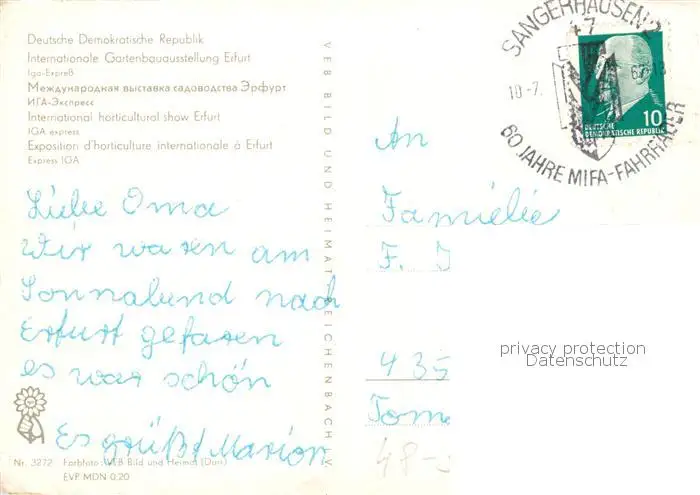 Deutsche Demokratische Republik
Internationale Gartenbauausstellung Erfurt
Iga-Expreß
Международная выставка садоводства Эрфурт
ИГА-Экспресс
International horticultural show Erfurt
IGA express
Exposition d'horticulture internationale à Erfurt
Express IGA
Liebe Oma
Wir waren am
Sonnabund nach
Erfurt gefaren
es war schön
Es grüßt Marion
Nr. 3272 Farbfoto: VEB Bild und Heimat (Darr)
EVP MDN 0,20
VEB BILD UND HEIMAT REICHENBACH V
SANGERHAUSEN 2
47
10-7.
60 JAHRE MIFA-FAHRRÄDER
10
DEUTSCHE
DEMOKRATISCHE REPUBLIK
An
Familie
F. J
435
Tom
48-
privacy protection
Datenschutz